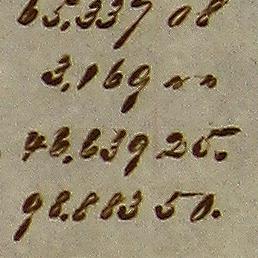 65.337 08
3,169 ""
43.639 25.
98.883 50.